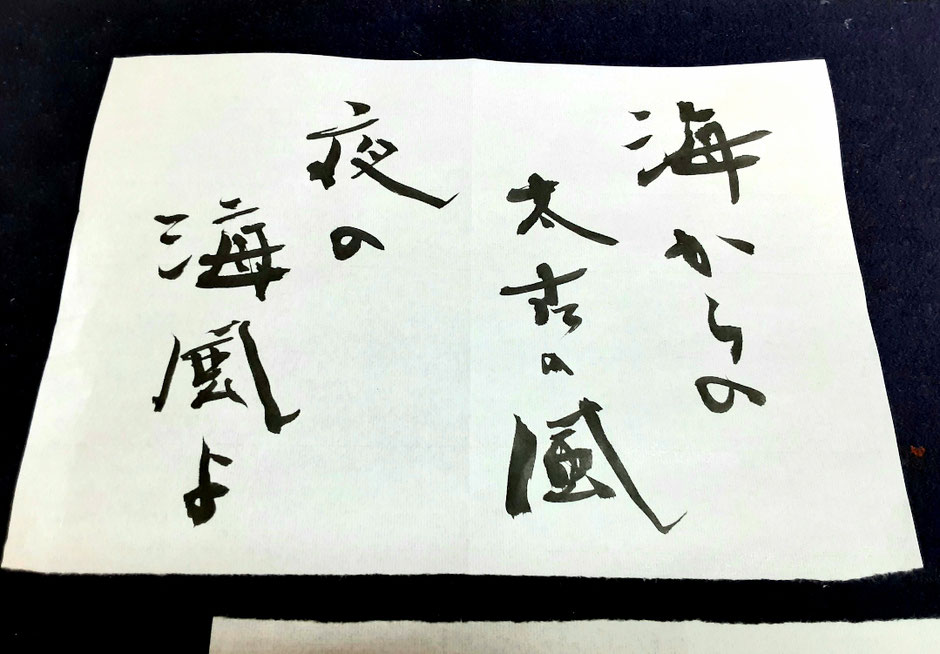 海からの
太古の風
夜の
海風よ